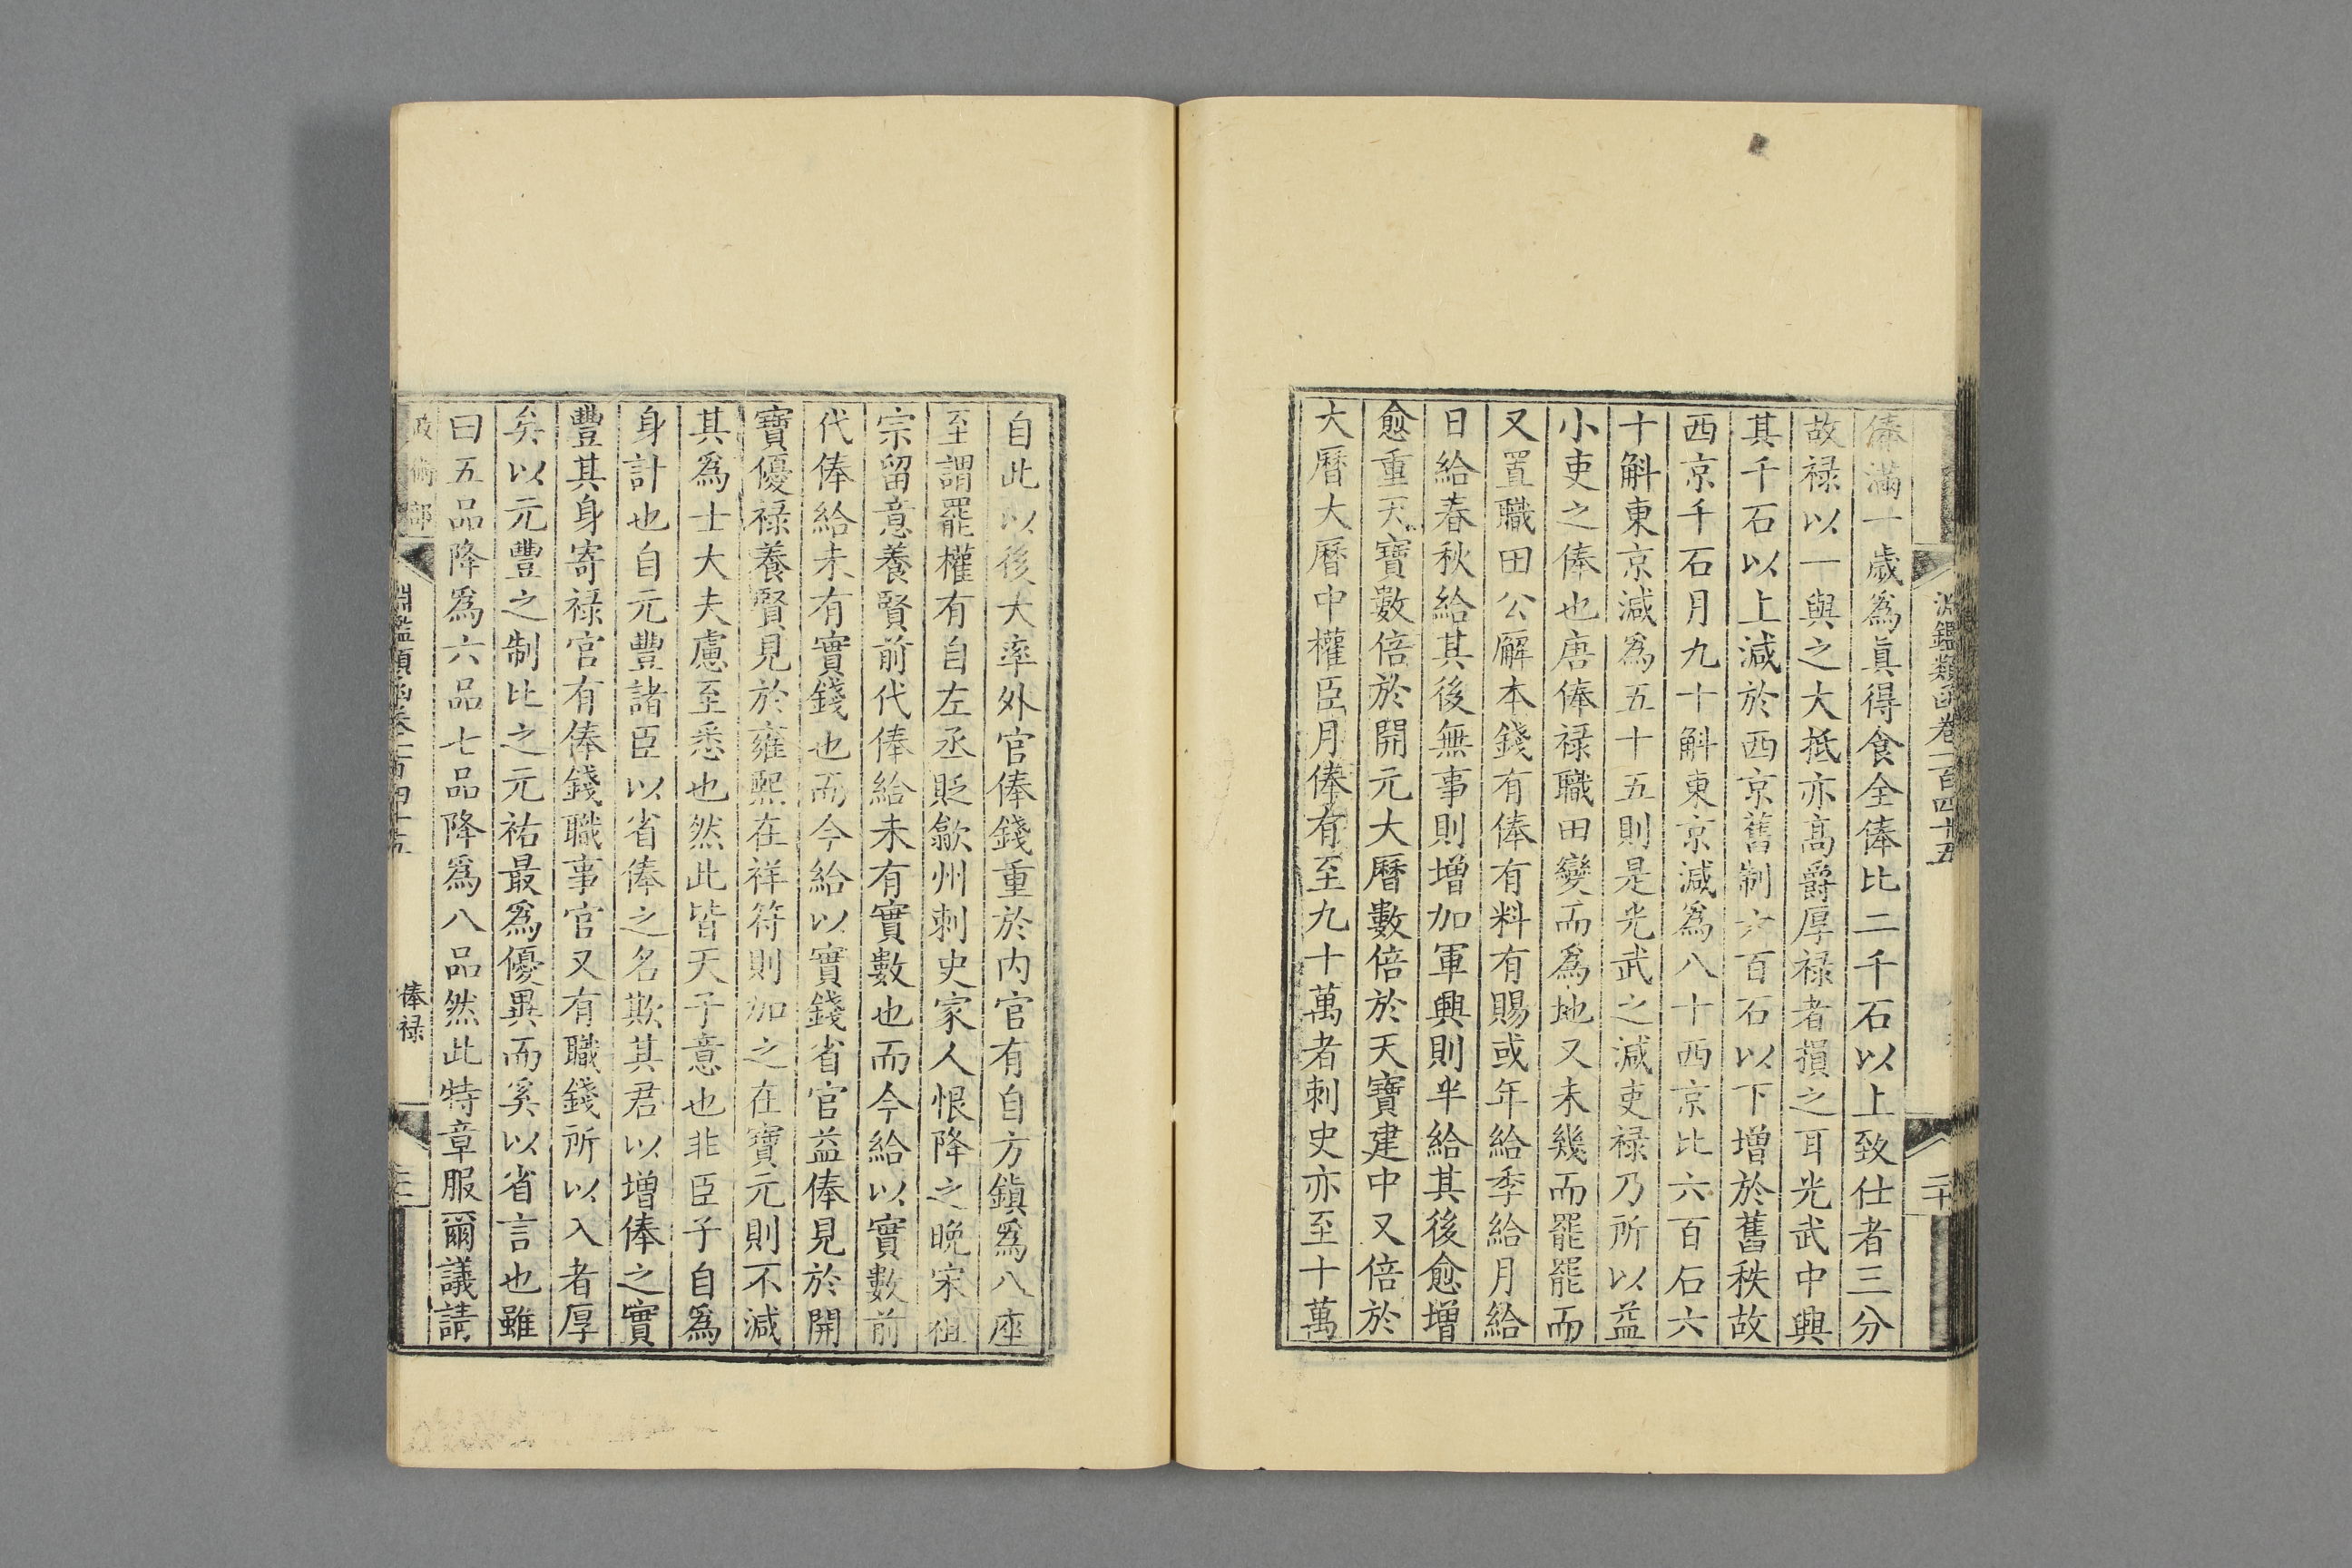 淵鑑類函卷一百四十五
二十
俸滿一歲爲眞得食全俸比二千石以上致仕者三分
故禄以一與之大抵亦高爵厚禄者損之耳光武中興
其千石以上減於西京舊制六百石以下增於舊秩故
西京千石月九十斛東京減爲八十西京比六百石六
十斛東京減爲五十五則是光武之減吏禄乃所以益
小吏之俸也唐俸禄職田變而爲地又未幾而罷罷而
又置職田公廨本錢有俸有料有賜或年給季給月給
日給春秋給其後無事則增加軍興則半給其後愈增
愈重天寶數倍於開元大曆數倍於天寶建中又倍於
大曆大曆中權臣月俸有至九十萬者刺史亦至十萬
自此以後大率外官俸錢重於内官有自方鎭爲八座
至謂罷權有自左丞貶歙州刺史家人恨降之晚宋祖
宗留意養賢前代俸給未有實數也而今給以實數前
代俸給未有實錢也而今給以實錢省官益俸見於開
寶優禄養賢見於雍熙在祥符則加之在寶元則不減
其爲士大夫慮至悉也然此皆天子意也非臣子自爲
身計也自元豐諸臣以省俸之名欺其君以增俸之實
豐其身寄禄官有俸錢職事官又有職錢所以入者厚
矣以元豐之制比之元祐最爲優異而奚以省言也雖
曰五品降爲六品七品降爲八品然此特章服爾議請
政術部
淵鑑類函卷一百四十五
俸禄